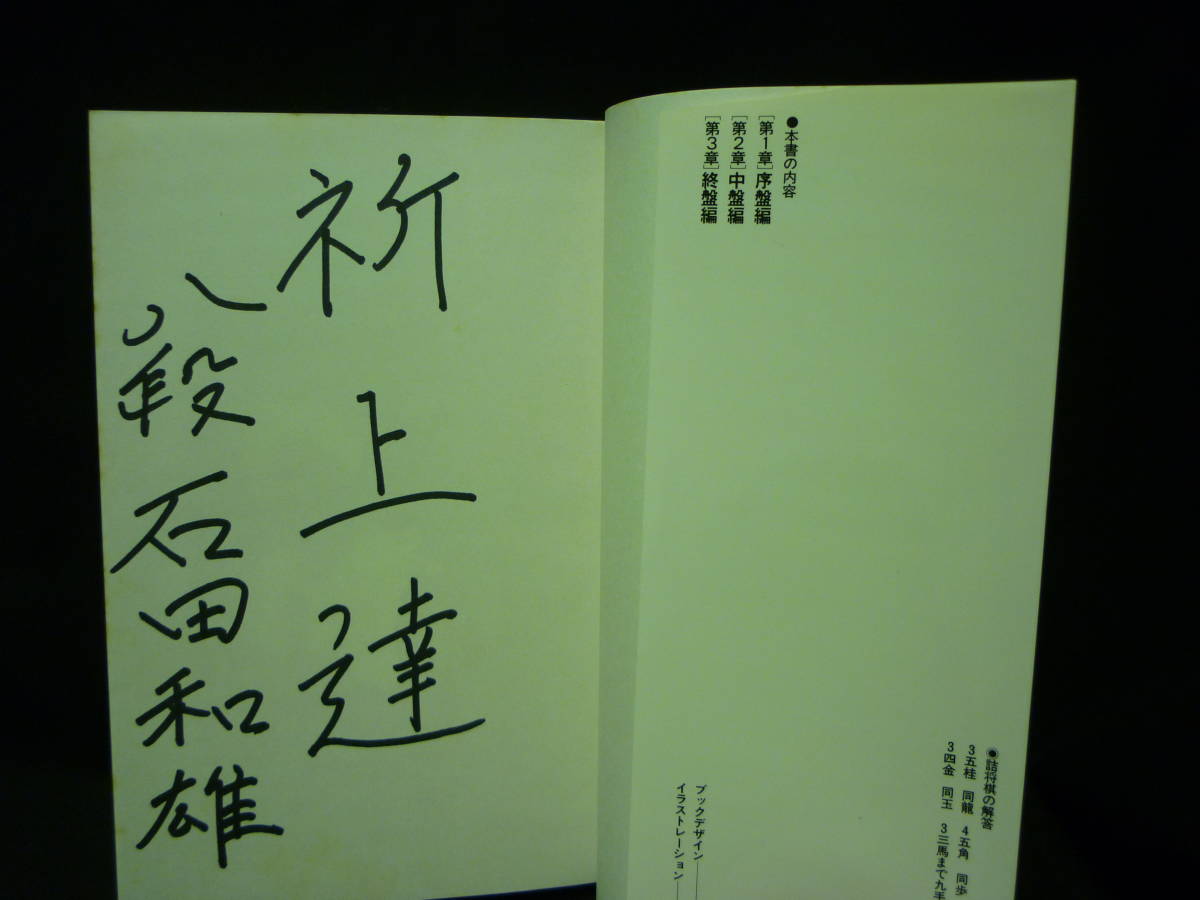 ●本書の内容
[第1章]序盤編
[第2章]中盤編
[第3章]終盤編
◉詰将棋の解答
3五桂 同龍 4五角 同歩
3四金 同玉 3三馬まで九手
ブックデザイン
イラストレーション
祈上達
八段 石田和雄